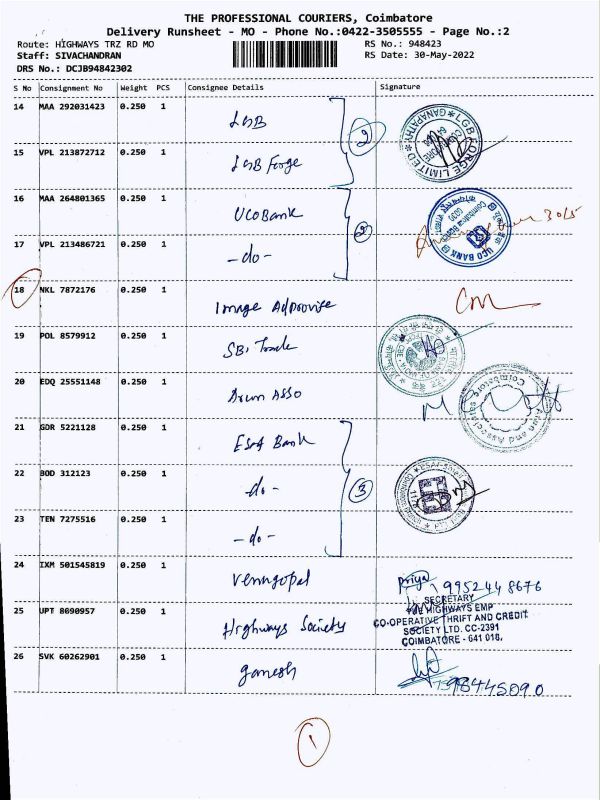 THE PROFESSIONAL COURIERS, Coimbatore
Delivery Runsheet - MO - Phone No.:0422-3505555 - Page No.:2
Route: HIGHWAYS TRZ RD MO RS No.: 948423
Staff: SIVACHANDRAN RS Date: 30-May-2022
DRS No.: DCJB94842302
S No Consignment No Weight PCS Consignee Details Signature
14 MAA 292031423 0.250 1 LGB 2 LGB FORGE LIMITED GANAPATHY
15 VPL 213872712 0.250 1 LGB Forge
16 MAA 264801365 0.250 1 UCO Bank 2 UCO BANK 30/5
17 VPL 213486721 0.250 1 -do-
18 NKL 7872176 0.250 1 Image
19 POL 8579912 0.250 1 SBI Trade
20 EDQ 25551148 0.250 1 Asso
21 GDR 5221128 0.250 1 ESAF Bank 3
22 BOD 312123 0.250 1 -do-
23 TEN 7275516 0.250 1 -do-
24 IXM 501545819 0.250 1 Venugopal Priya 9952448676
25 UPT 8090957 0.250 1 Highways Society
SECRETARY
THE HIGHWAYS EMP
CO-OPERATIVE THRIFT AND CREDIT
SOCIETY LTD. CC-2391
COIMBATORE - 641 018.
26 SVK 60262901 0.250 1 Ganesh
1